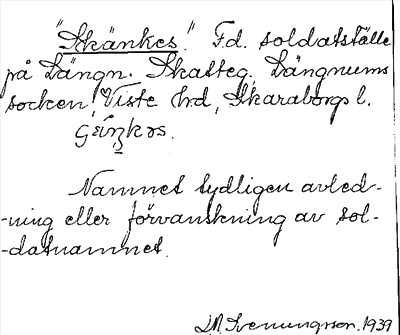 "Skänkes". F.d. soldatställe
på Längn. Skatteg. Längnums
socken, Viste hrd, Skaraborgs l.
Namnet tydligen avled-
-ning eller förvanskning av sol-
-datnamnet.
Svenungsson. 1939